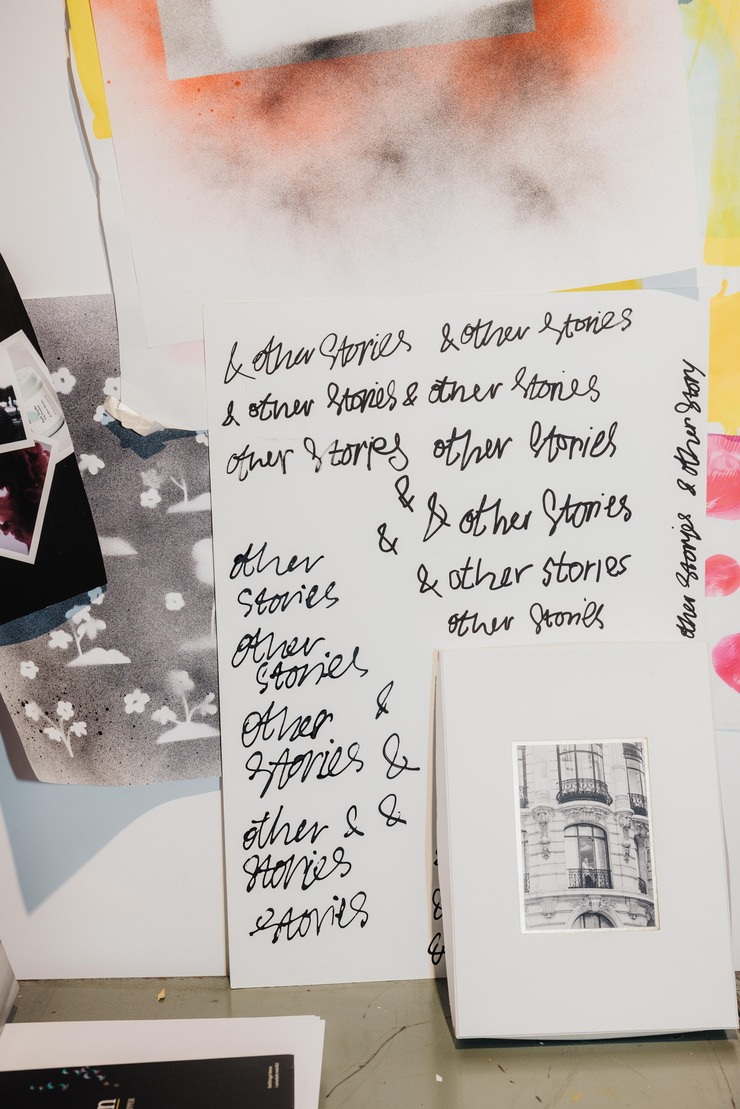 & other Stories & other Stories
& other Stories & other Stories
other Stories other Stories
&
& & other Stories
& other stories
other Stories
other
Stories
other
Stories
other &
Stories &
other & &
Stories
Stories
&
&
&
other Stories & other Story